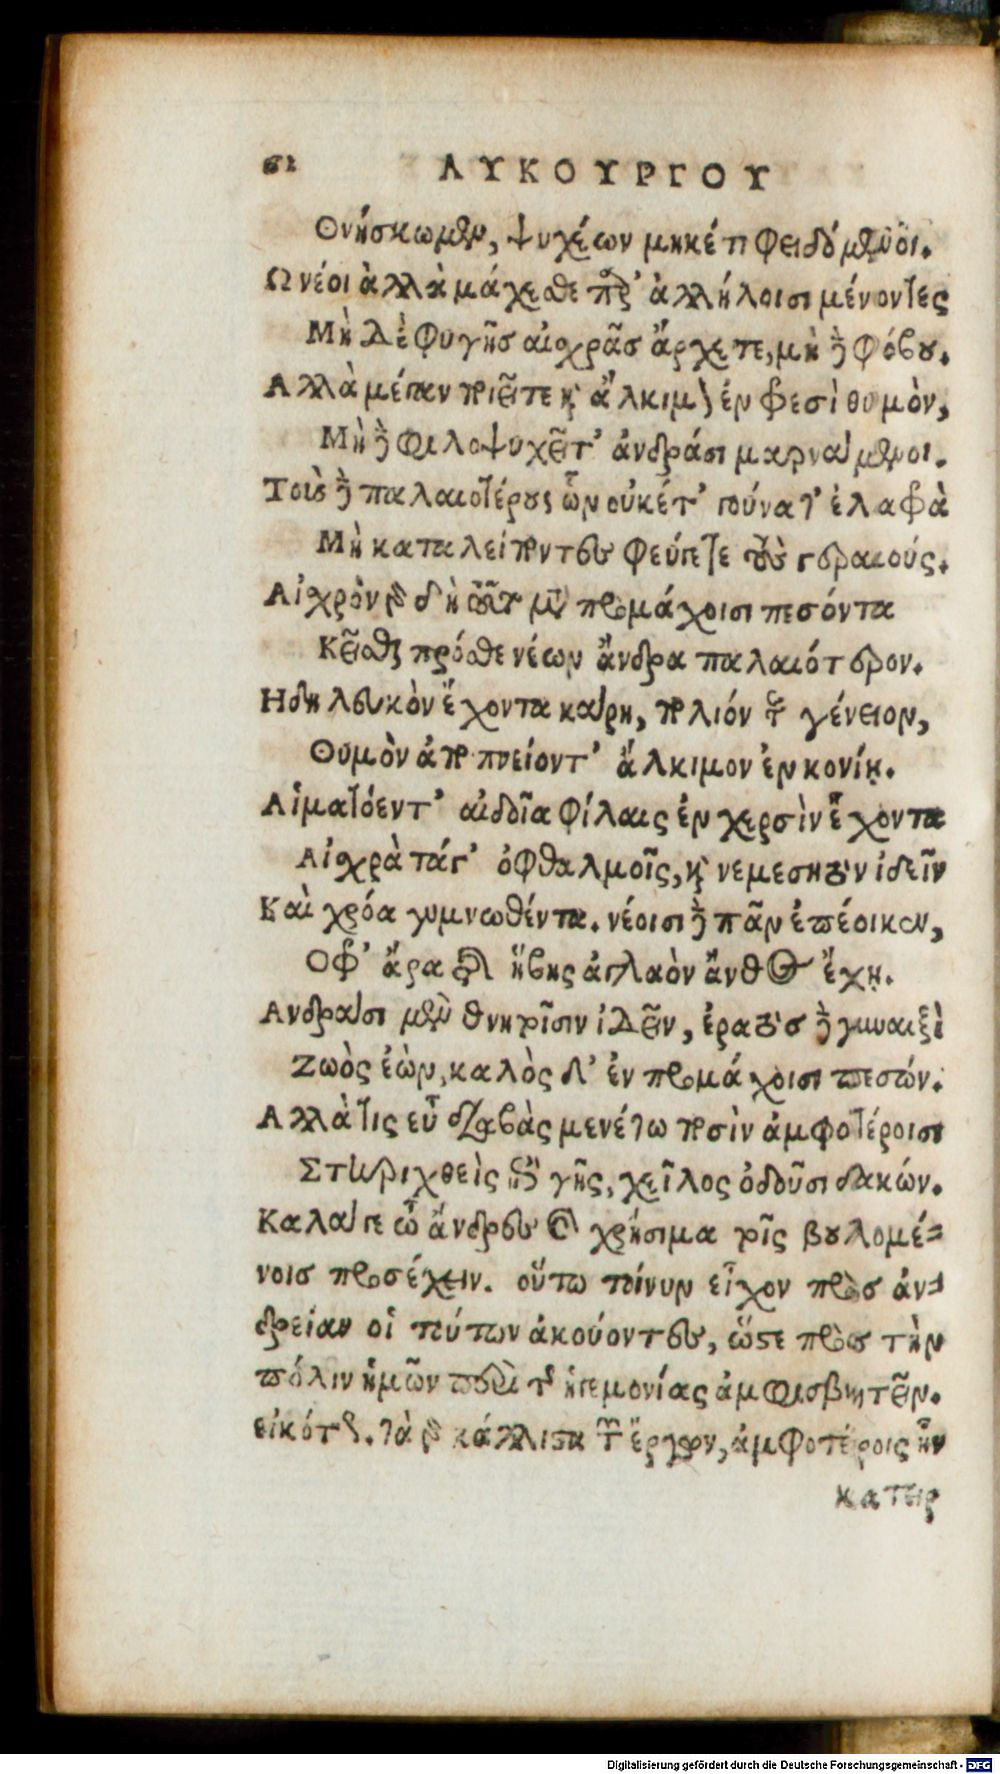 62 ΛΥΚΟΥΡΓΟΥ
Θνήσκωμεν, ψυχέων μηκέτι φειδόμενοι.
Ω νέοι ἀλλὰ μάχεσθε παρ' ἀλλήλοισι μένοντες
Μὴ δὲ φυγῆς αἰσχρᾶς ἄρχετε, μὴ δὲ φόβου.
Αλλὰ μέγαν ποιεῖτε καὶ ἄλκιμον ἐν φρεσὶ θυμὸν,
Μὴ δὲ φιλοψυχεῖτ' ἀνδράσι μαρνάμενοι.
Τοὺς δὲ παλαιοτέρους ὧν οὐκέτ' γούνατ' ἐλαφρὰ
Μὴ καταλείποντες φεύγετε τοὺς γεραιούς.
Αἰσχρὸν γὰρ δὴ τοῦτο μετὰ προμάχοισι πεσόντα
Κεῖσθαι πρόσθε νέων ἄνδρα παλαιότερον.
Ηδη λευκὸν ἔχοντα κάρη, πολιόν τε γένειον,
Θυμὸν ἀποπνείοντ' ἄλκιμον ἐν κονίῃ.
Αἱματόεντ' αἰδοῖα φίλαις ἐν χερσὶν ἔχοντα
Αἰσχρὰ τά γ' ὀφθαλμοῖς, καὶ νεμεσητὸν ἰδεῖν
Καὶ χρόα γυμνωθέντα. νέοισι δὲ πᾶν ἐπέοικεν,
Οφρ' ἄρα τῆς ἥβης ἀγλαὸν ἄνθος ἔχῃ.
Ανδράσι μὲν θνητοῖσιν ἰδεῖν, ἐρατὸς δὲ γυναιξὶ
Ζωὸς ἐὼν, καλὸς δ' ἐν προμάχοισι πεσών.
Αλλὰ τις εὖ διαβὰς μενέτω ποσὶν ἀμφοτέροισι
Στηριχθεὶς ἐπὶ γῆς, χεῖλος ὀδοῦσι δακών.
Καλά γε ὦ ἄνδρες καὶ χρήσιμα τοῖς βουλομέ-
νοις προσέχειν. οὕτω τοίνυν εἶχον πρὸς ἀν-
δρείαν οἱ τούτων ἀκούοντες, ὥστε πρὸς τὴν
πόλιν ἡμῶν περὶ τῆς ἡγεμονίας ἀμφισβητεῖν.
εἰκότως. τὰ γὰρ κάλλιστα τῶν ἔργων, ἀμφοτέροις ἦν
κατειρ
Digitalisierung gefördert durch die Deutsche Forschungsgemeinschaft - DFG